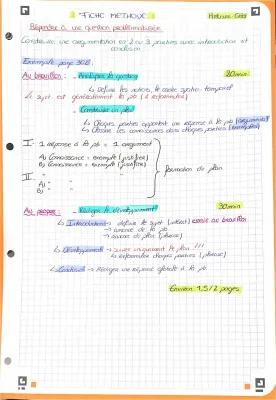 FICHE METHODE
Histoire-Géo
Répondre à une question problématisée
Construire une argumentation en 2 ou 3 parties avec introduction et conclusion
Exemple page 308
Au brouillon : → Analyser la question 20min
↳ Définir les notions, le cadre spatio-temporel
Le sujet est généralement la pb (à reformuler)
→ Construire un plan
↳ Chaque parties apportent une réponse à la pb (arguments)
↳ Classe les connaissances dans chaques parties (exemples)
I : 1 réponse à la pb = 1 argument
A) Connaissance + exemple (justifié)
B) Connaissance + exemple (justifié)
II :
A)
B)
Formation du plan
Au propre : → Rédiger le développement 30min
↳ Introduction → définir le sujet (intérêt) écrire au brouillon
↳ annonce de la pb
↳ annonce du plan (phrase)
↳ Développement → suivre uniquement le plan !!!
↳ reformuler chaques parties (phrase)
↳ Conclusion → Rédiger une réponse globale à la pb
Environ 1,5/2 pages